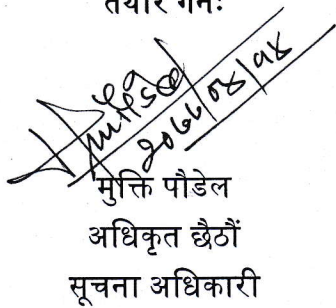 तयार गर्नेः
२०७७|०४|१४
मुक्ति पौडेल
अधिकृत छैठौं
सूचना अधिकारी